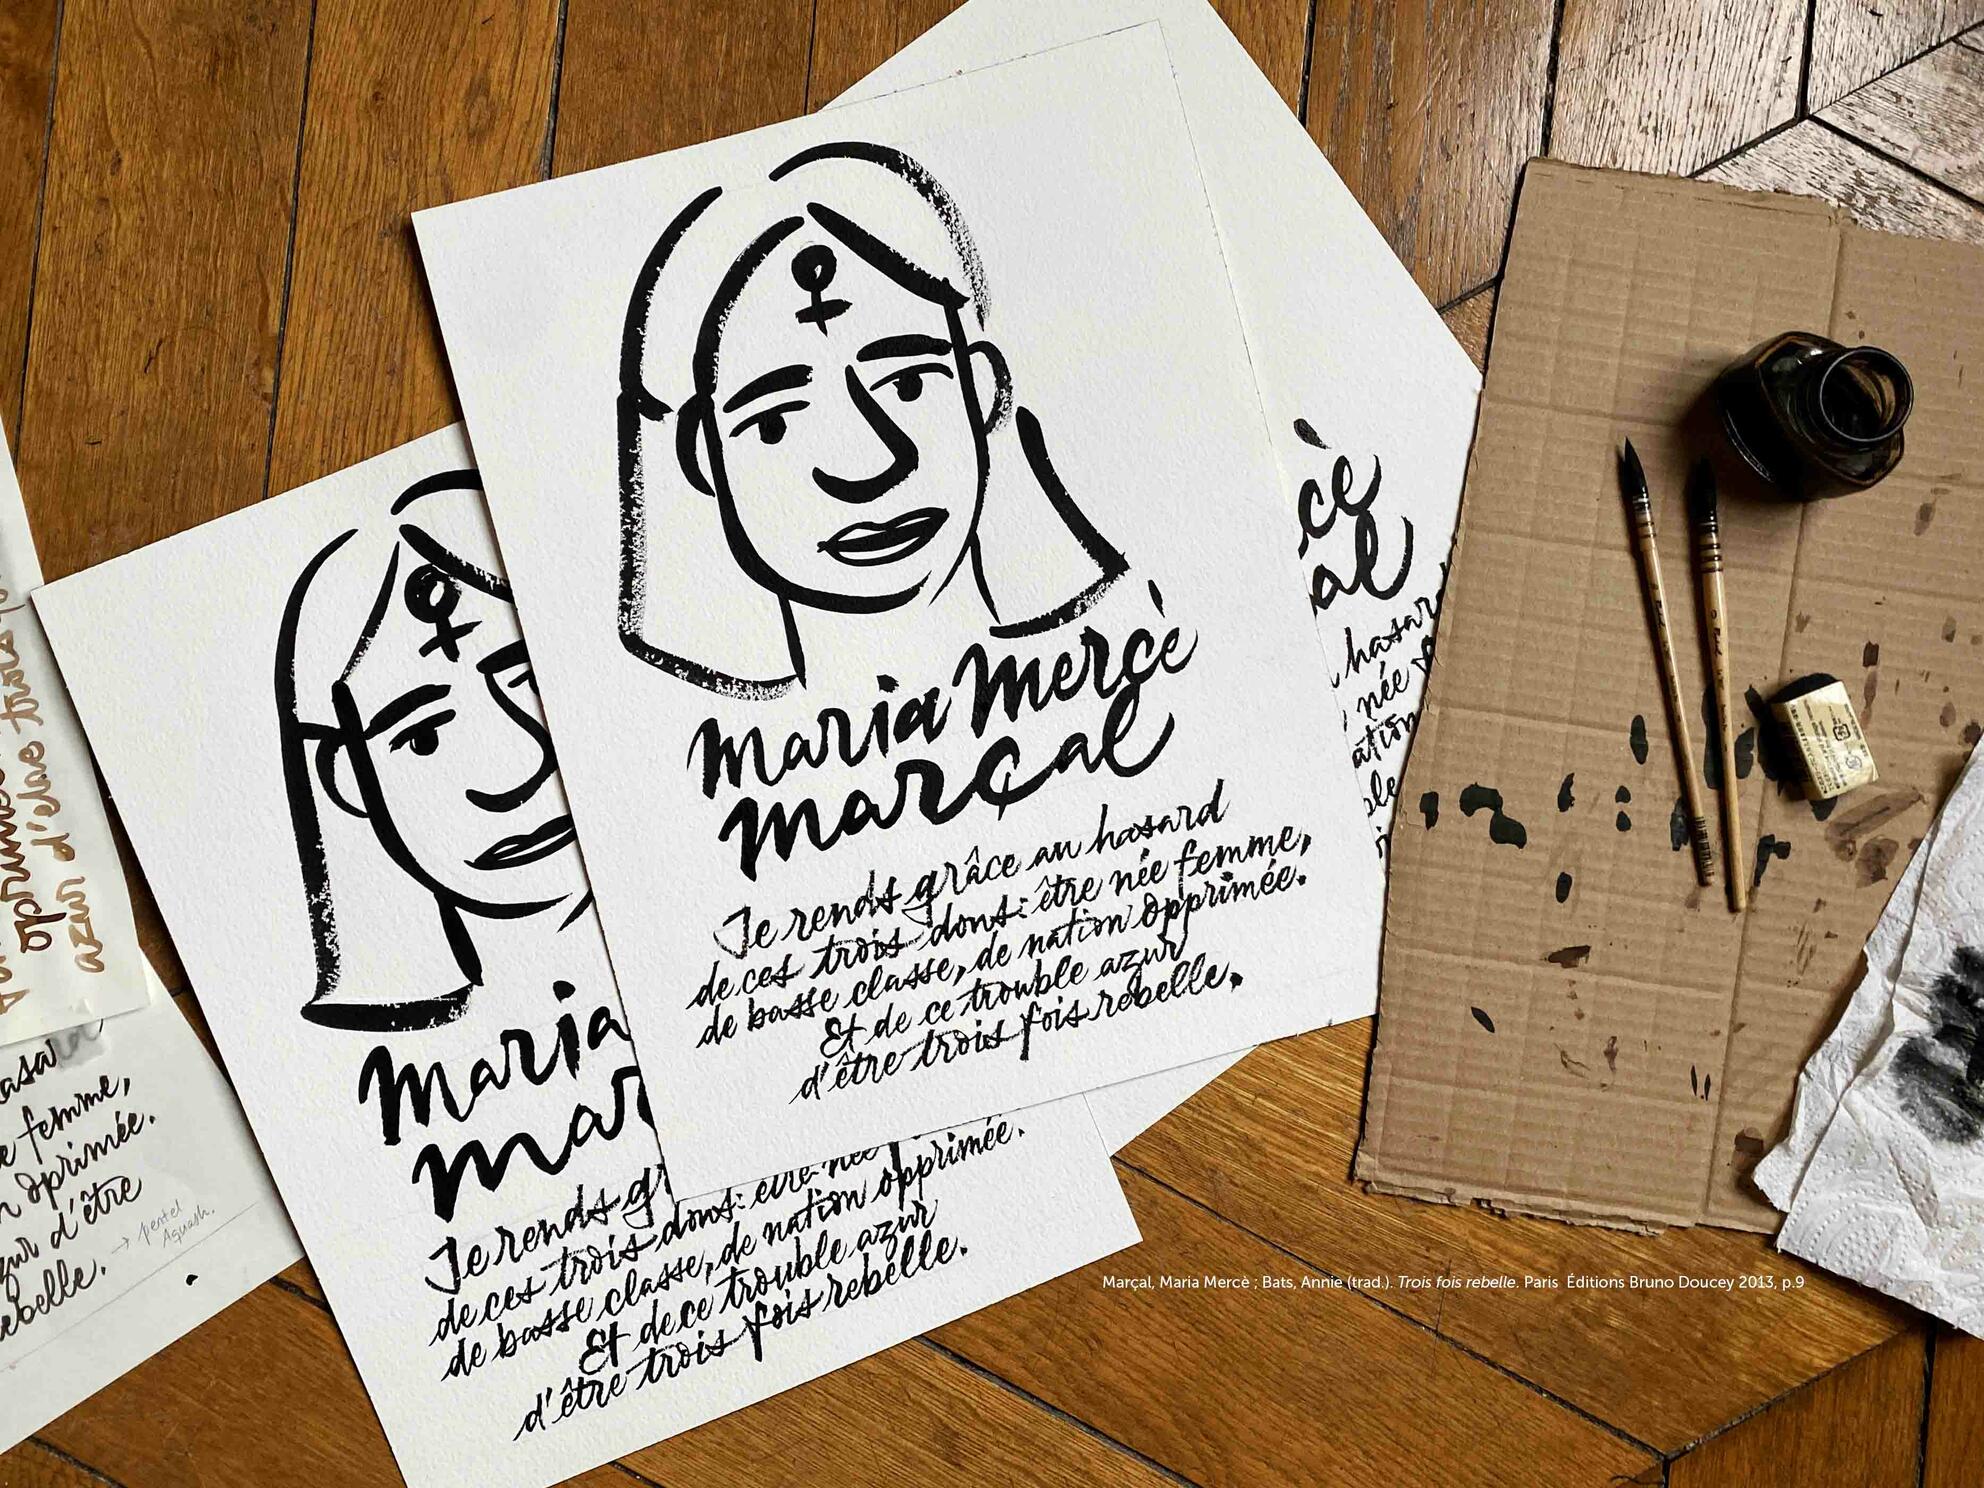 Maria Mercè
Marçal
Je rends grâce au hasard
de ces trois dons : être née femme,
de basse classe, de nation opprimée.
Et de ce trouble azur
d'être trois fois rebelle.
Maria
Mar
Je rends gr
de ces trois dons : être née
de basse classe, de nation opprimée.
Et de ce trouble azur
d'être trois fois rebelle.
cè
al
hasard
née f
ation
ble
opprimée
azur d'être trois fo
hasard
e femme,
n opprimée.
zur d'être
ebelle.
→ pentel
Aquash.
Marçal, Maria Mercè ; Bats, Annie (trad.). Trois fois rebelle. Paris Éditions Bruno Doucey 2013, p.9